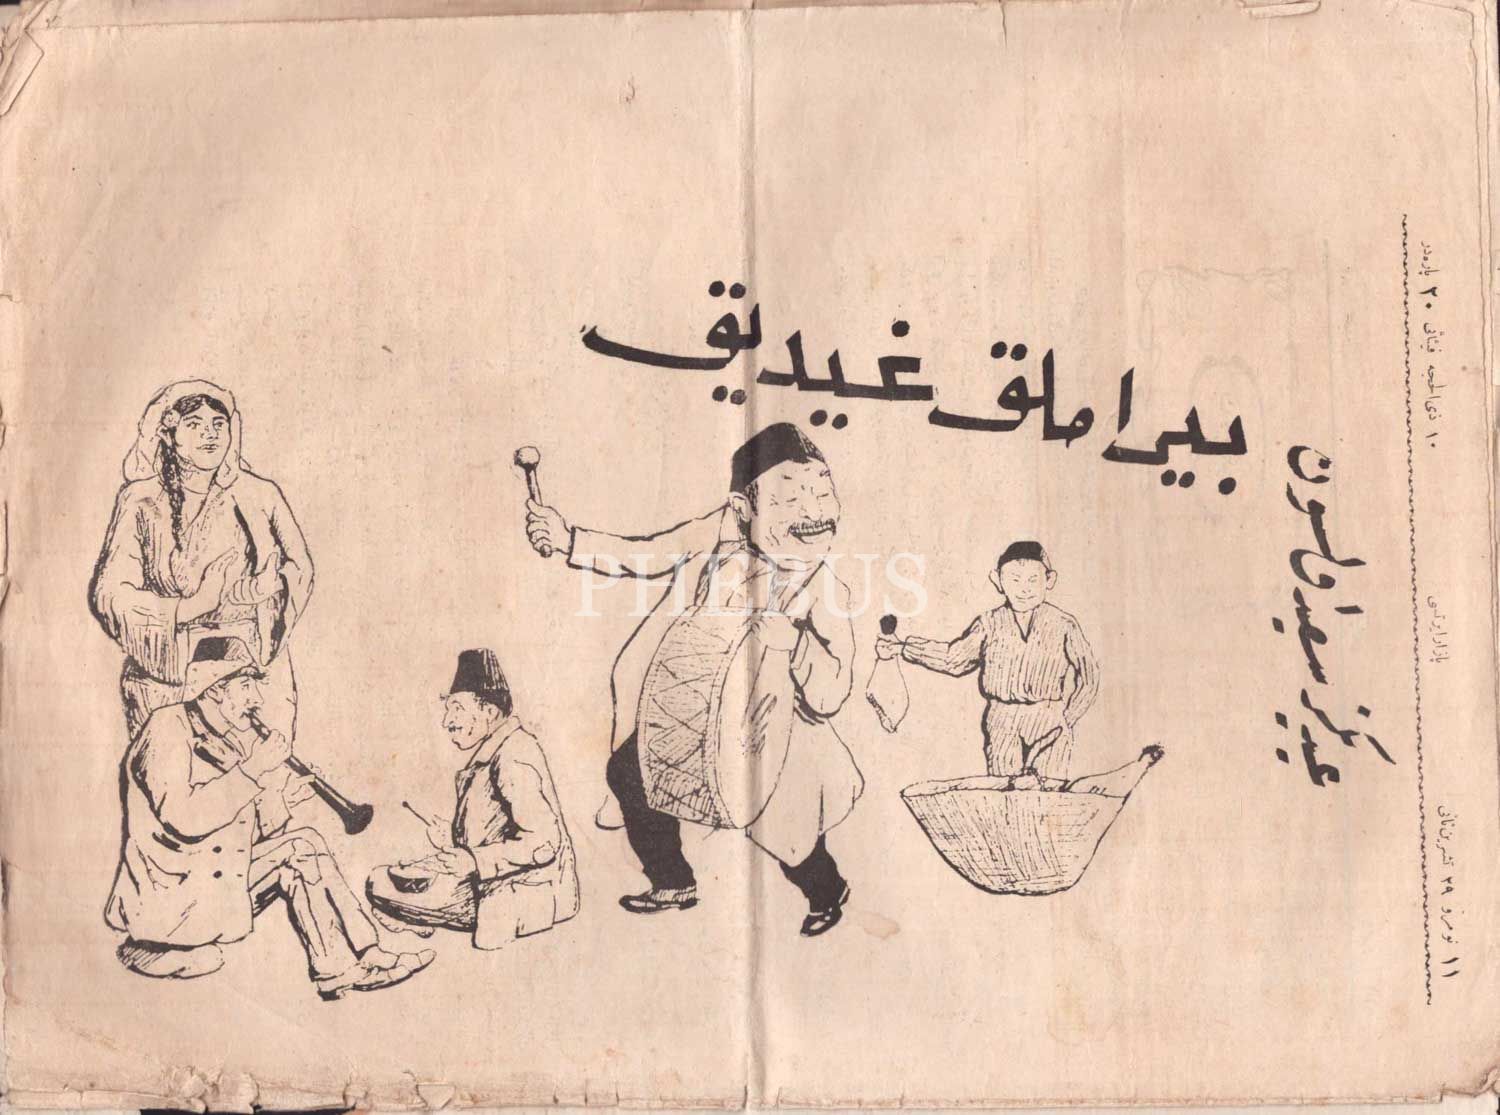 ١١ نومرو ٢٩ تشرین ثانی
بازارایرتسی
١٠ ذی الحجه فیئاتی ٢٠ پاره‌در
عیدیکز سعید اولسون
بیراملق غیدیق
PHEBUS